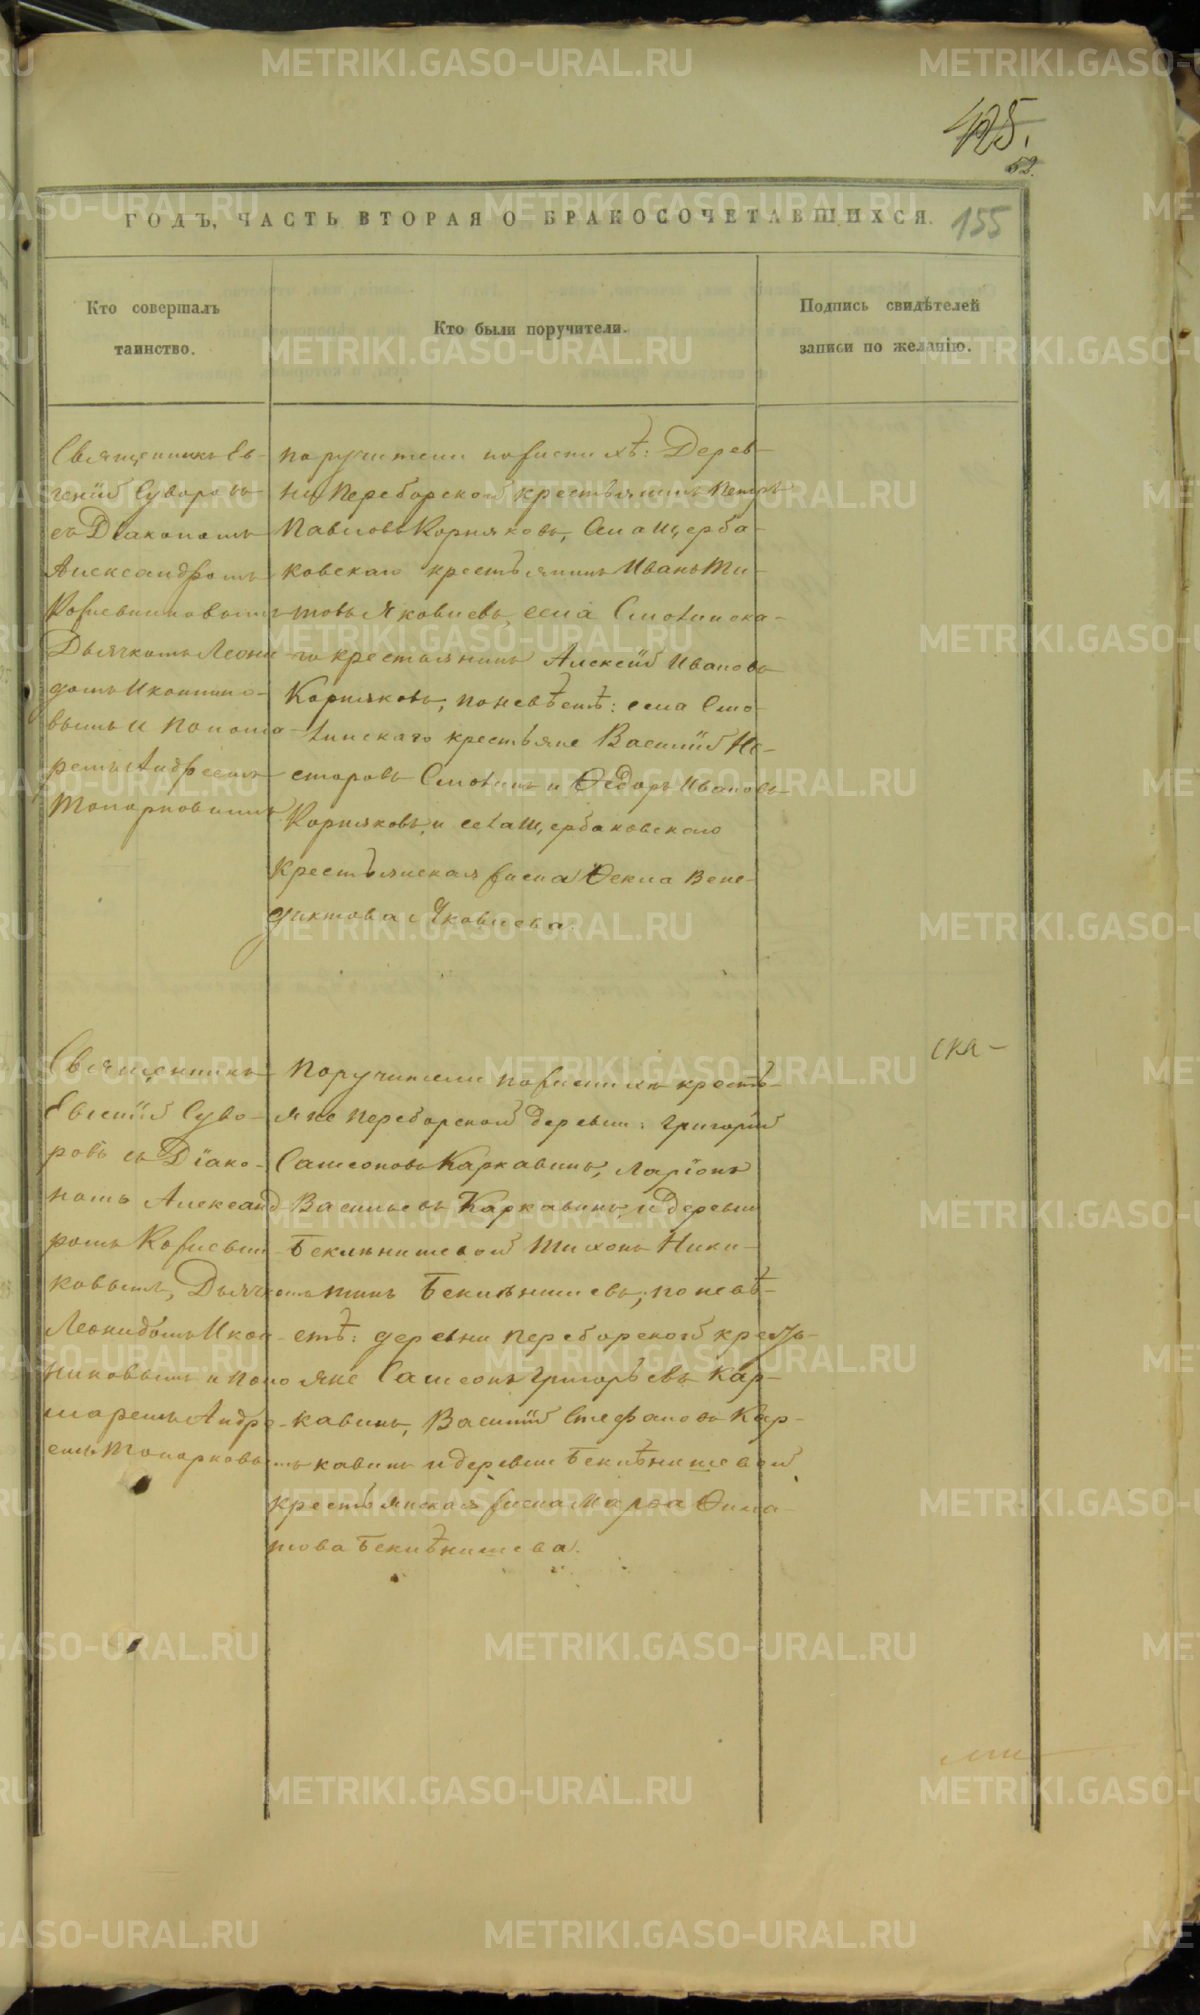 425.
52.
ГОДЪ, ЧАСТЬ ВТОРАЯ О БРАКОСОЧЕТАВШИХСЯ.
155
Кто совершалъ
таинство.
Кто были поручители.
Подпись свидѣтелей
записи по желанію.
Священникъ Ев-
геній Суворовъ
съ Діакономъ
Александромъ
Дьячкомъ Леони-
домъ Иконнико-
вымъ и Понома-
ремъ Андреемъ
Топорковымъ
поручители по женихѣ: Дерев-
ни Переборской крестьянинъ Петръ
Павловъ Корляковъ, села Щерба-
ковскаго крестьянинъ Иванъ Ти-
товъ Яковлевъ, села Смолинска-
го крестьянинъ Алексѣй Ивановъ
Корляковъ, по невѣстѣ: села Смо-
линскаго крестьяне Василій Не-
стеровъ Смолинъ и Ѳедоръ Ивановъ
Корляковъ, и села Щербаковскаго
крестьянская жена Ѳекла Вене-
диктова Яковлева.
Священникъ
Евгеній Суво-
ровъ съ Діако-
номъ Александ-
ромъ
ковымъ, Дьячкомъ
Леонидомъ Икон-
никовымъ и поно-
маремъ Андре-
емъ Топорковымъ
Поручители по женихѣ кресть-
яне Переборской деревни: Григорій
Самсоновъ Каркавинъ, Ларіонъ
Васильевъ Каркавинъ, и деревни
Беклѣнишевой Тихонъ Ники-
тинъ Беклѣнишевъ; по невѣ-
стѣ: деревни Переборской кресть-
яне Самсонъ Григорьевъ Кар-
кавинъ, Василій Стефановъ Кар-
кавинъ и деревни Беклѣнишевой
крестьянская жена Марѳа Филa-
това Беклѣнишева.
ска-
METRIKI.GASO-URAL.RU